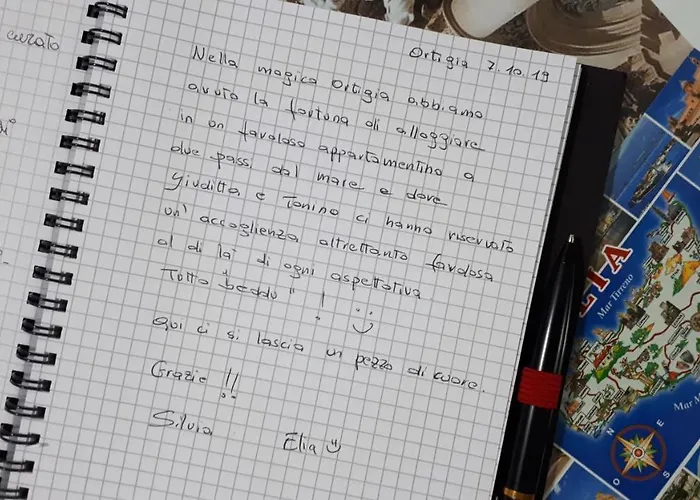 curato
Ortigia 7.10.19
Nella magica Ortigia abbiamo
avuto la fortuna di alloggiare
in un favoloso appartamentino a
due passi dal mare e dove
Giuditta e Tonino ci hanno riservato
un' accoglienza altrettanto favolosa
al di là di ogni aspettativa
Tutto "beddu" ! :)
Qui ci si lascia un pezzo di cuore.
Grazie !!
Silvia Elia
Mar Tirreno
Mar
N
E
S
O